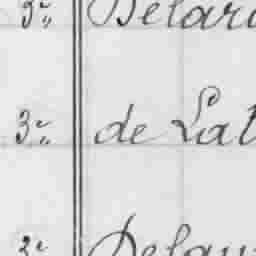 3e „ Delar
3e „ de Lat
3e Delau